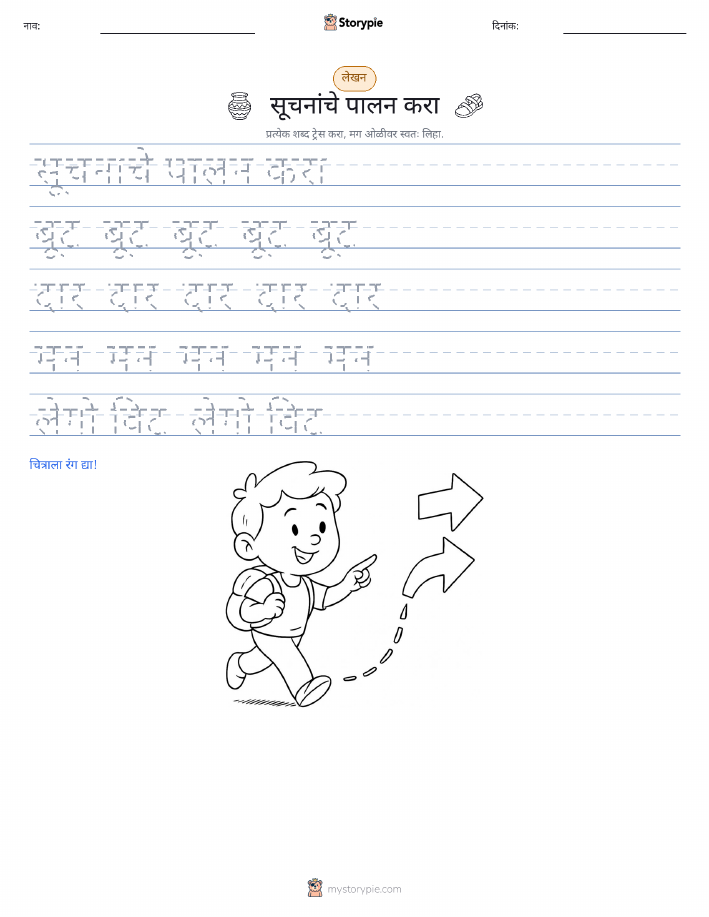 नाव:
Storypie
दिनांक:
लेखन
सूचनांचे पालन करा
प्रत्येक शब्द ट्रेस करा, मग ओळीवर स्वतः लिहा.
सूचनाचे पालन करा
बूट बूट बूट बूट बूट
दार दार दार दार दार
मन मन मन मन मन
लेगो विट लेगो विट
चित्राला रंग द्या!
mystorypie.com